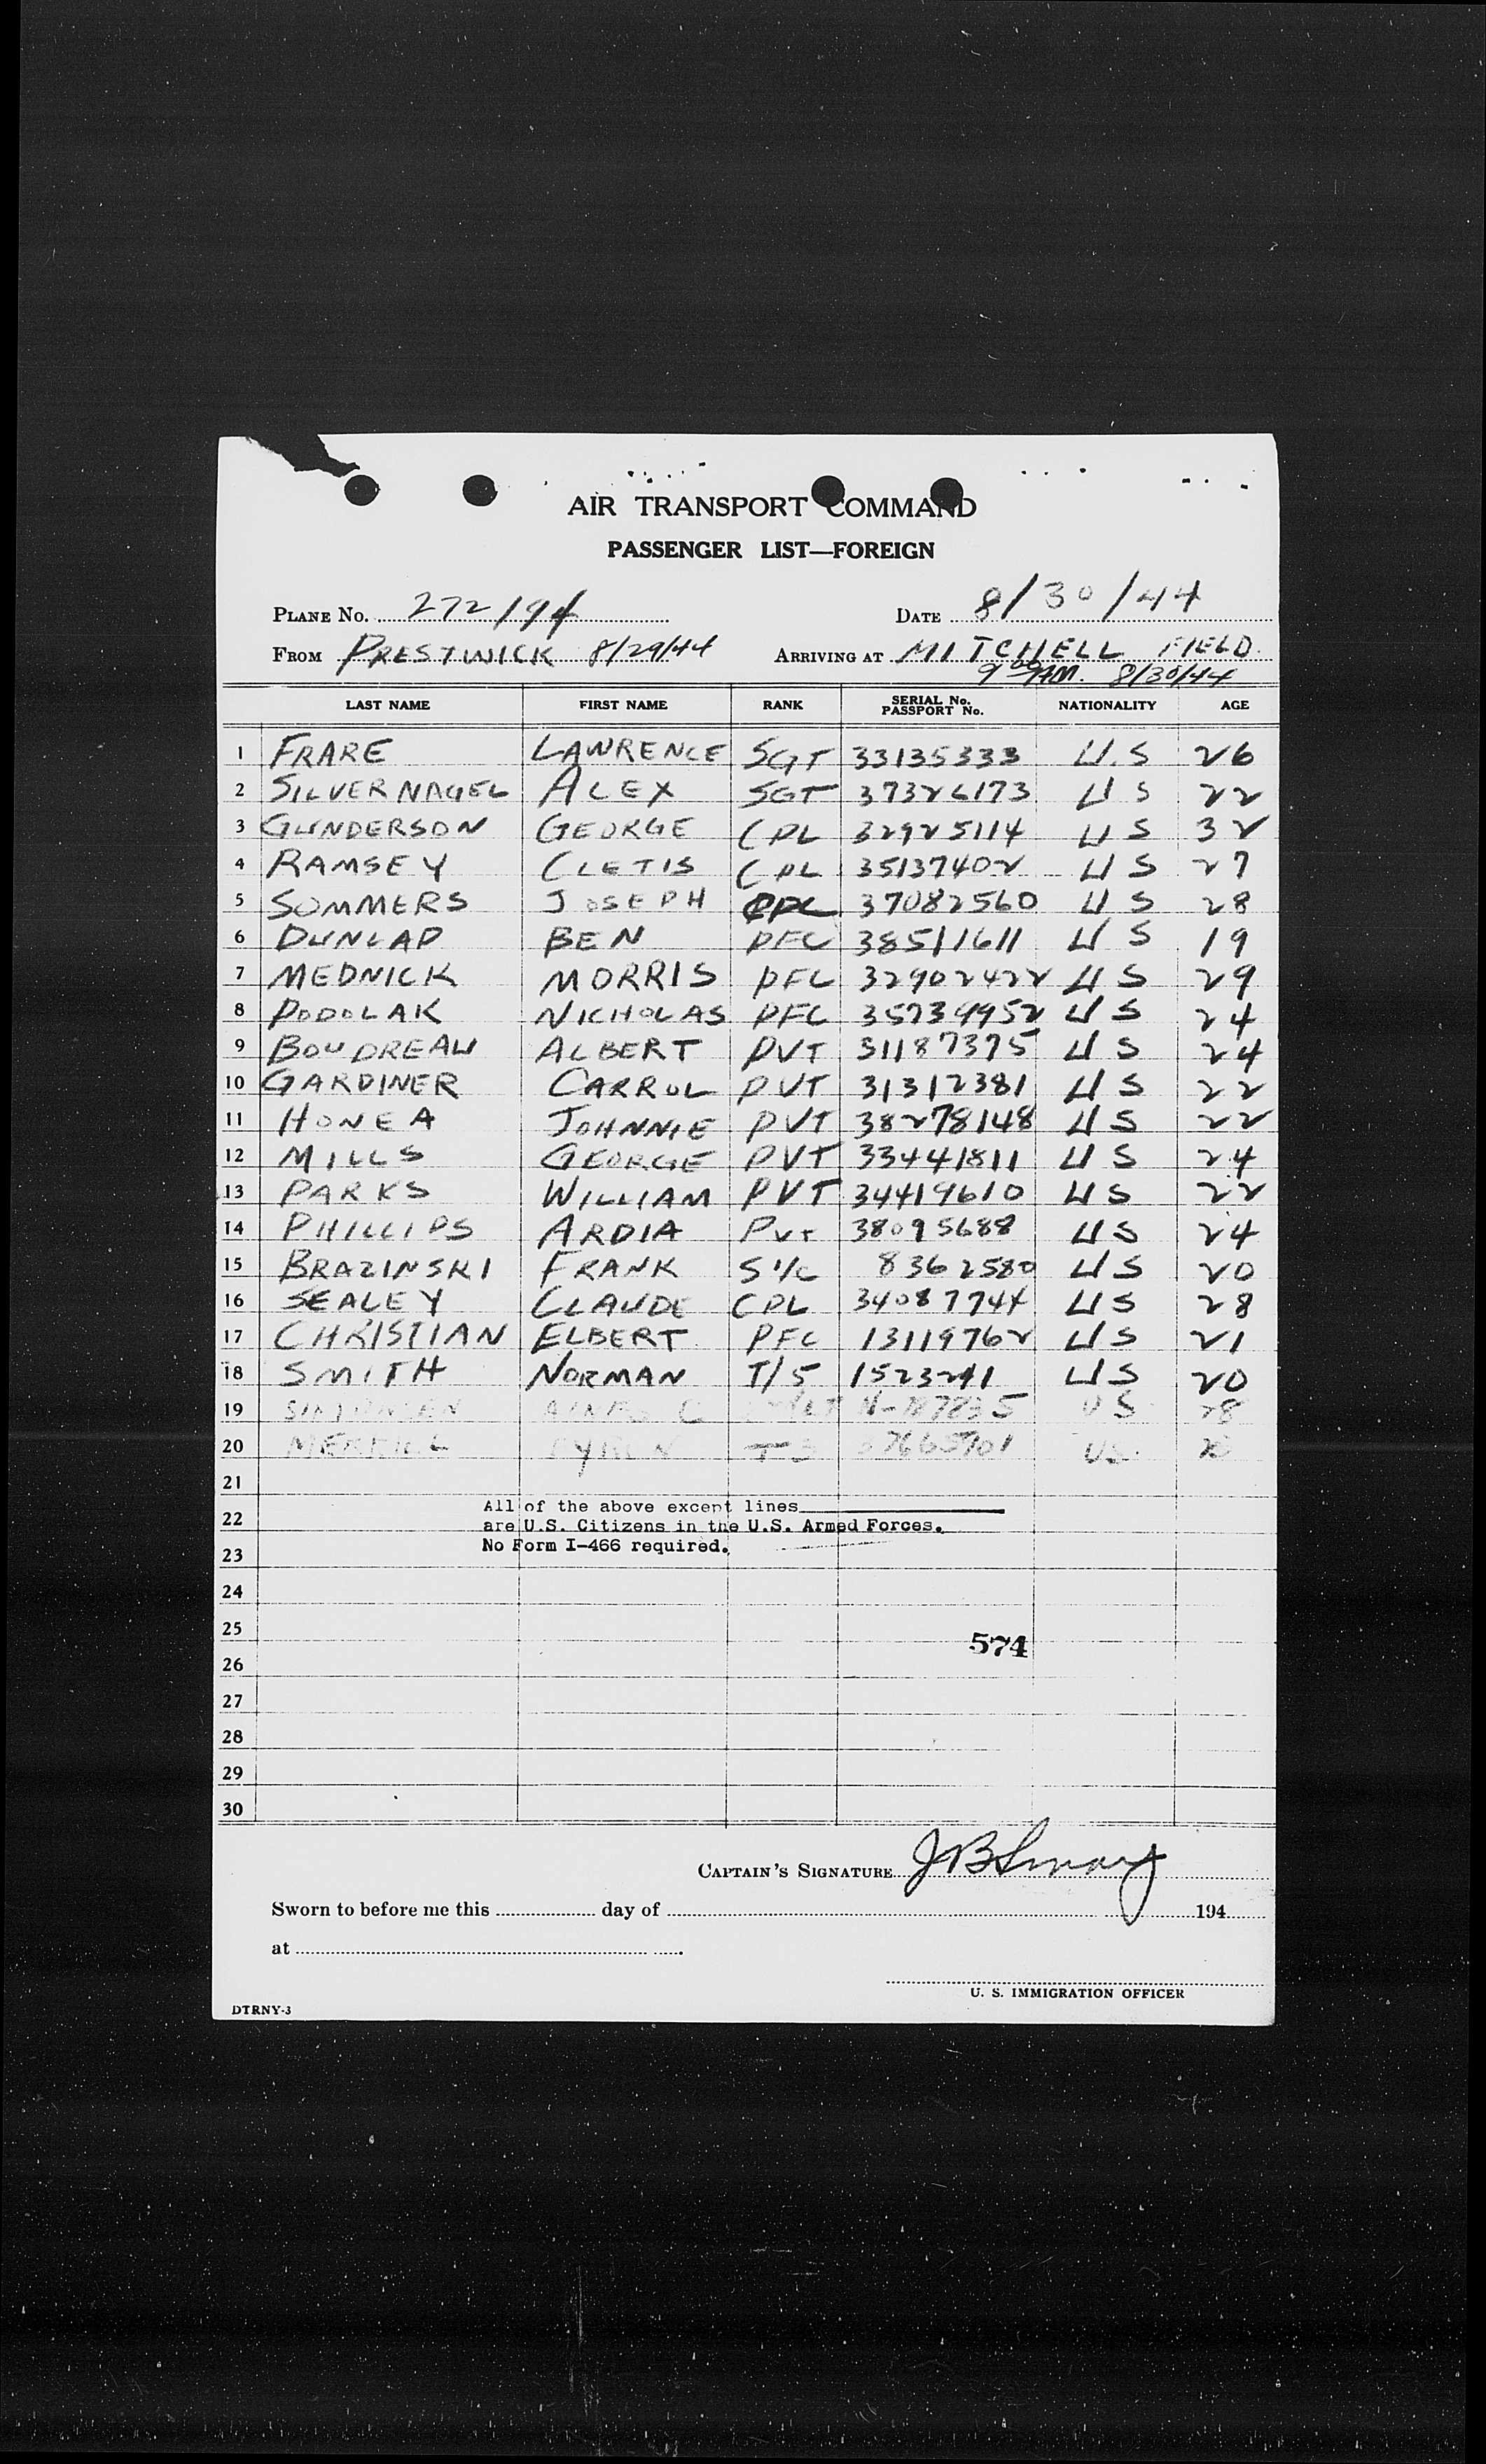 AIR TRANSPORT COMMAND
PASSENGER LIST—FOREIGN
PLANE No. 272/94 DATE 8/30/44
FROM PRESTWICK 8/29/44 ARRIVING AT MITCHELL FIELD
9 00 AM. 8/30/44
LAST NAME FIRST NAME RANK SERIAL No. PASSPORT No. NATIONALITY AGE
1 FRARE LAWRENCE SGT 33135333 U.S 26
2 SILVERNAGEL ALEX SGT 37326173 U S 22
3 GUNDERSON GEORGE CPL 32925114 U S 32
4 RAMSEY CLETIS CPL 35137402 U S 27
5 SOMMERS JOSEPH CPL 37082560 U S 28
6 DUNLAP BEN PFC 38511611 U S 19
7 MEDNICK MORRIS PFC 32902422 U S 29
8 PODOLAK NICHOLAS PFC 35739952 U S 24
9 BOUDREAU ALBERT PVT 31187375 U S 24
10 GARDINER CARROL PVT 31312381 U S 22
11 HONEA JOHNNIE PVT 38278148 U S 22
12 MILLS GEORGE PVT 33441811 U S 24
13 PARKS WILLIAM PVT 34419610 U S 22
14 PHILLIPS ARDIA PVT 38095688 U S 24
15 BRAZINSKI FRANK S1/C 8362580 U S 20
16 SEALEY CLAUDE CPL 34087744 U S 28
17 CHRISTIAN ELBERT PFC 13119762 U S 21
18 SMITH NORMAN T/5 1523241 U S 20
19 U S 28
20 MERRILL US
21
22
23
All of the above except lines
are U.S. Citizens in the U.S. Armed Forces.
No Form I-466 required.
24
25
574
26
27
28
29
30
CAPTAIN'S SIGNATURE
Sworn to before me this day of 194
at
U. S. IMMIGRATION OFFICER
DTRNY-3